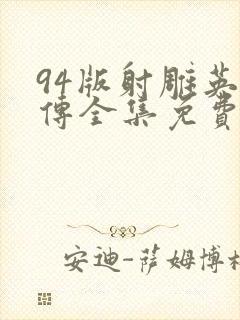 94版射雕英
传全集免费
安迪-萨姆博格